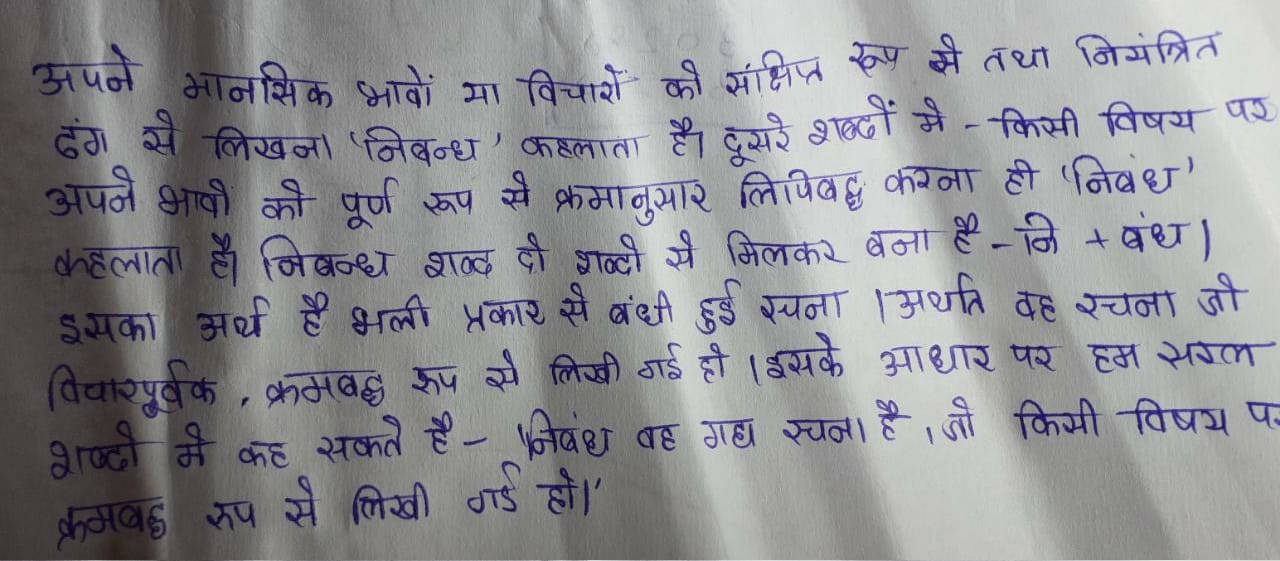 अपने मानसिक भावों या विचारों को संक्षिप्त रूप से तथा नियंत्रित
ढंग से लिखना 'निबन्ध' कहलाता है। दूसरे शब्दों मे - किसी विषय पर
अपने भावो को पूर्ण रूप से क्रमानुसार लिपिबद्ध करना ही 'निबंध'
कहलाता है। निबन्ध शब्द दो शब्दो से मिलकर बना है - नि + बंध।
इसका अर्थ है भली प्रकार से बंधी हुई रचना । अर्थात वह रचना जो
विचारपूर्वक, क्रमबद्ध रूप से लिखी गई हो । इसके आधार पर हम सरल
शब्दो मे कह सकते है - 'निबंध वह गद्य रचना है, जो किसी विषय पर
क्रमबद्ध रूप से लिखी गई हो।'